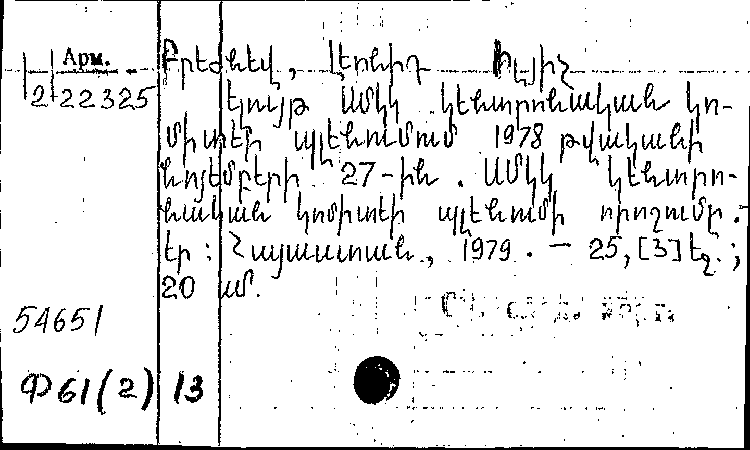 Арм.
2 22325
Բրեժնեվ, Լեոնիդ Իլյիչ
Ելույթ ՍՄԿԿ Կենտրոնական կո-
միտեի պլենումում 1978 թվականի
նոյեմբերի 27-ին. ՍՄԿԿ Կենտրո-
նական կոմիտեի պլենումի որոշումը.-
Եր: Հայաստան, 1979. — 25, [3] էջ.;
20 սմ.
54651
Ф61(2) 13